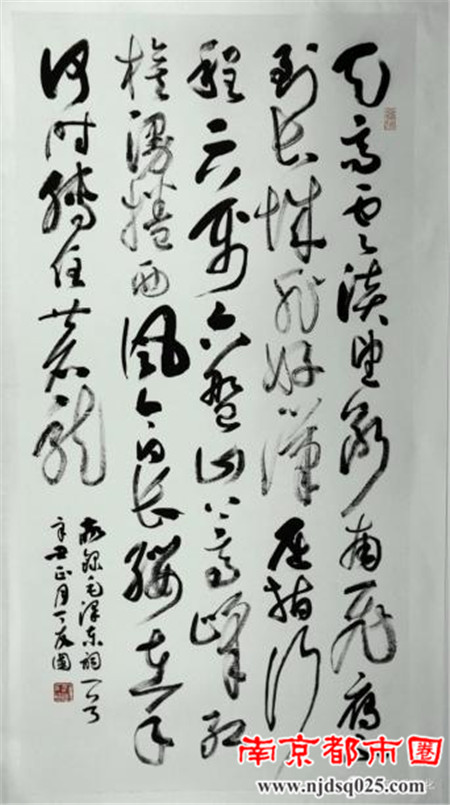 天高云淡望断南飞雁不
到长城非好汉屈指行
程二万六盘山上高峰红
旗漫捲西风今日长缨在手
何时缚住苍龙
敬录毛泽东词一首
辛丑正月丁友国
南京都市圈
www.njdsq025.com